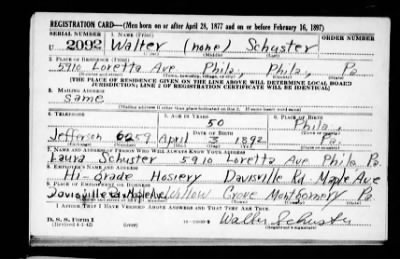 REGISTRATION CARD—(Men born on or after April 28, 1877 and on or before February 16, 1897)
SERIAL NUMBER 1. NAME (Print) ORDER NUMBER
U 2092 Walter (none) Schuster
2. PLACE OF RESIDENCE (Print)
5910 Loretta Ave Phila, Phila, Pa
[THE PLACE OF RESIDENCE GIVEN ON THE LINE ABOVE WILL DETERMINE LOCAL BOARD
JURISDICTION; LINE 2 OF REGISTRATION CERTIFICATE WILL BE IDENTICAL]
3. MAILING ADDRESS
Same
[Mailing address if other than place indicated on line 2. If same insert word same]
4. TELEPHONE 5. AGE IN YEARS 6. PLACE OF BIRTH
50 Phila,
DATE OF BIRTH
Jefferson 6259 April 3 1892 Pa.
7. NAME AND ADDRESS OF PERSON WHO WILL ALWAYS KNOW YOUR ADDRESS
Laura Schuster 5910 Loretta Ave Phila Pa.
8. EMPLOYER'S NAME AND ADDRESS
Hi-Grade Hosiery Davisville Rd. Maple Ave
9. PLACE OF EMPLOYMENT OR BUSINESS
Davisville Rd. Maple Ave Willow Grove Montgomery Pa.
I AFFIRM THAT I HAVE VERIFIED ABOVE ANSWERS AND THAT THEY ARE TRUE.
D. S. S. Form 1
(Revised 4-1-42)
Walter Schuster